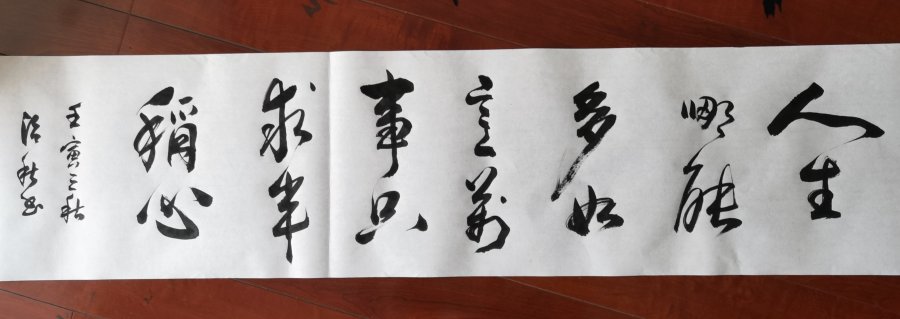 人生
哪能
多如
意万
事只
求半
稱心
壬寅之秋